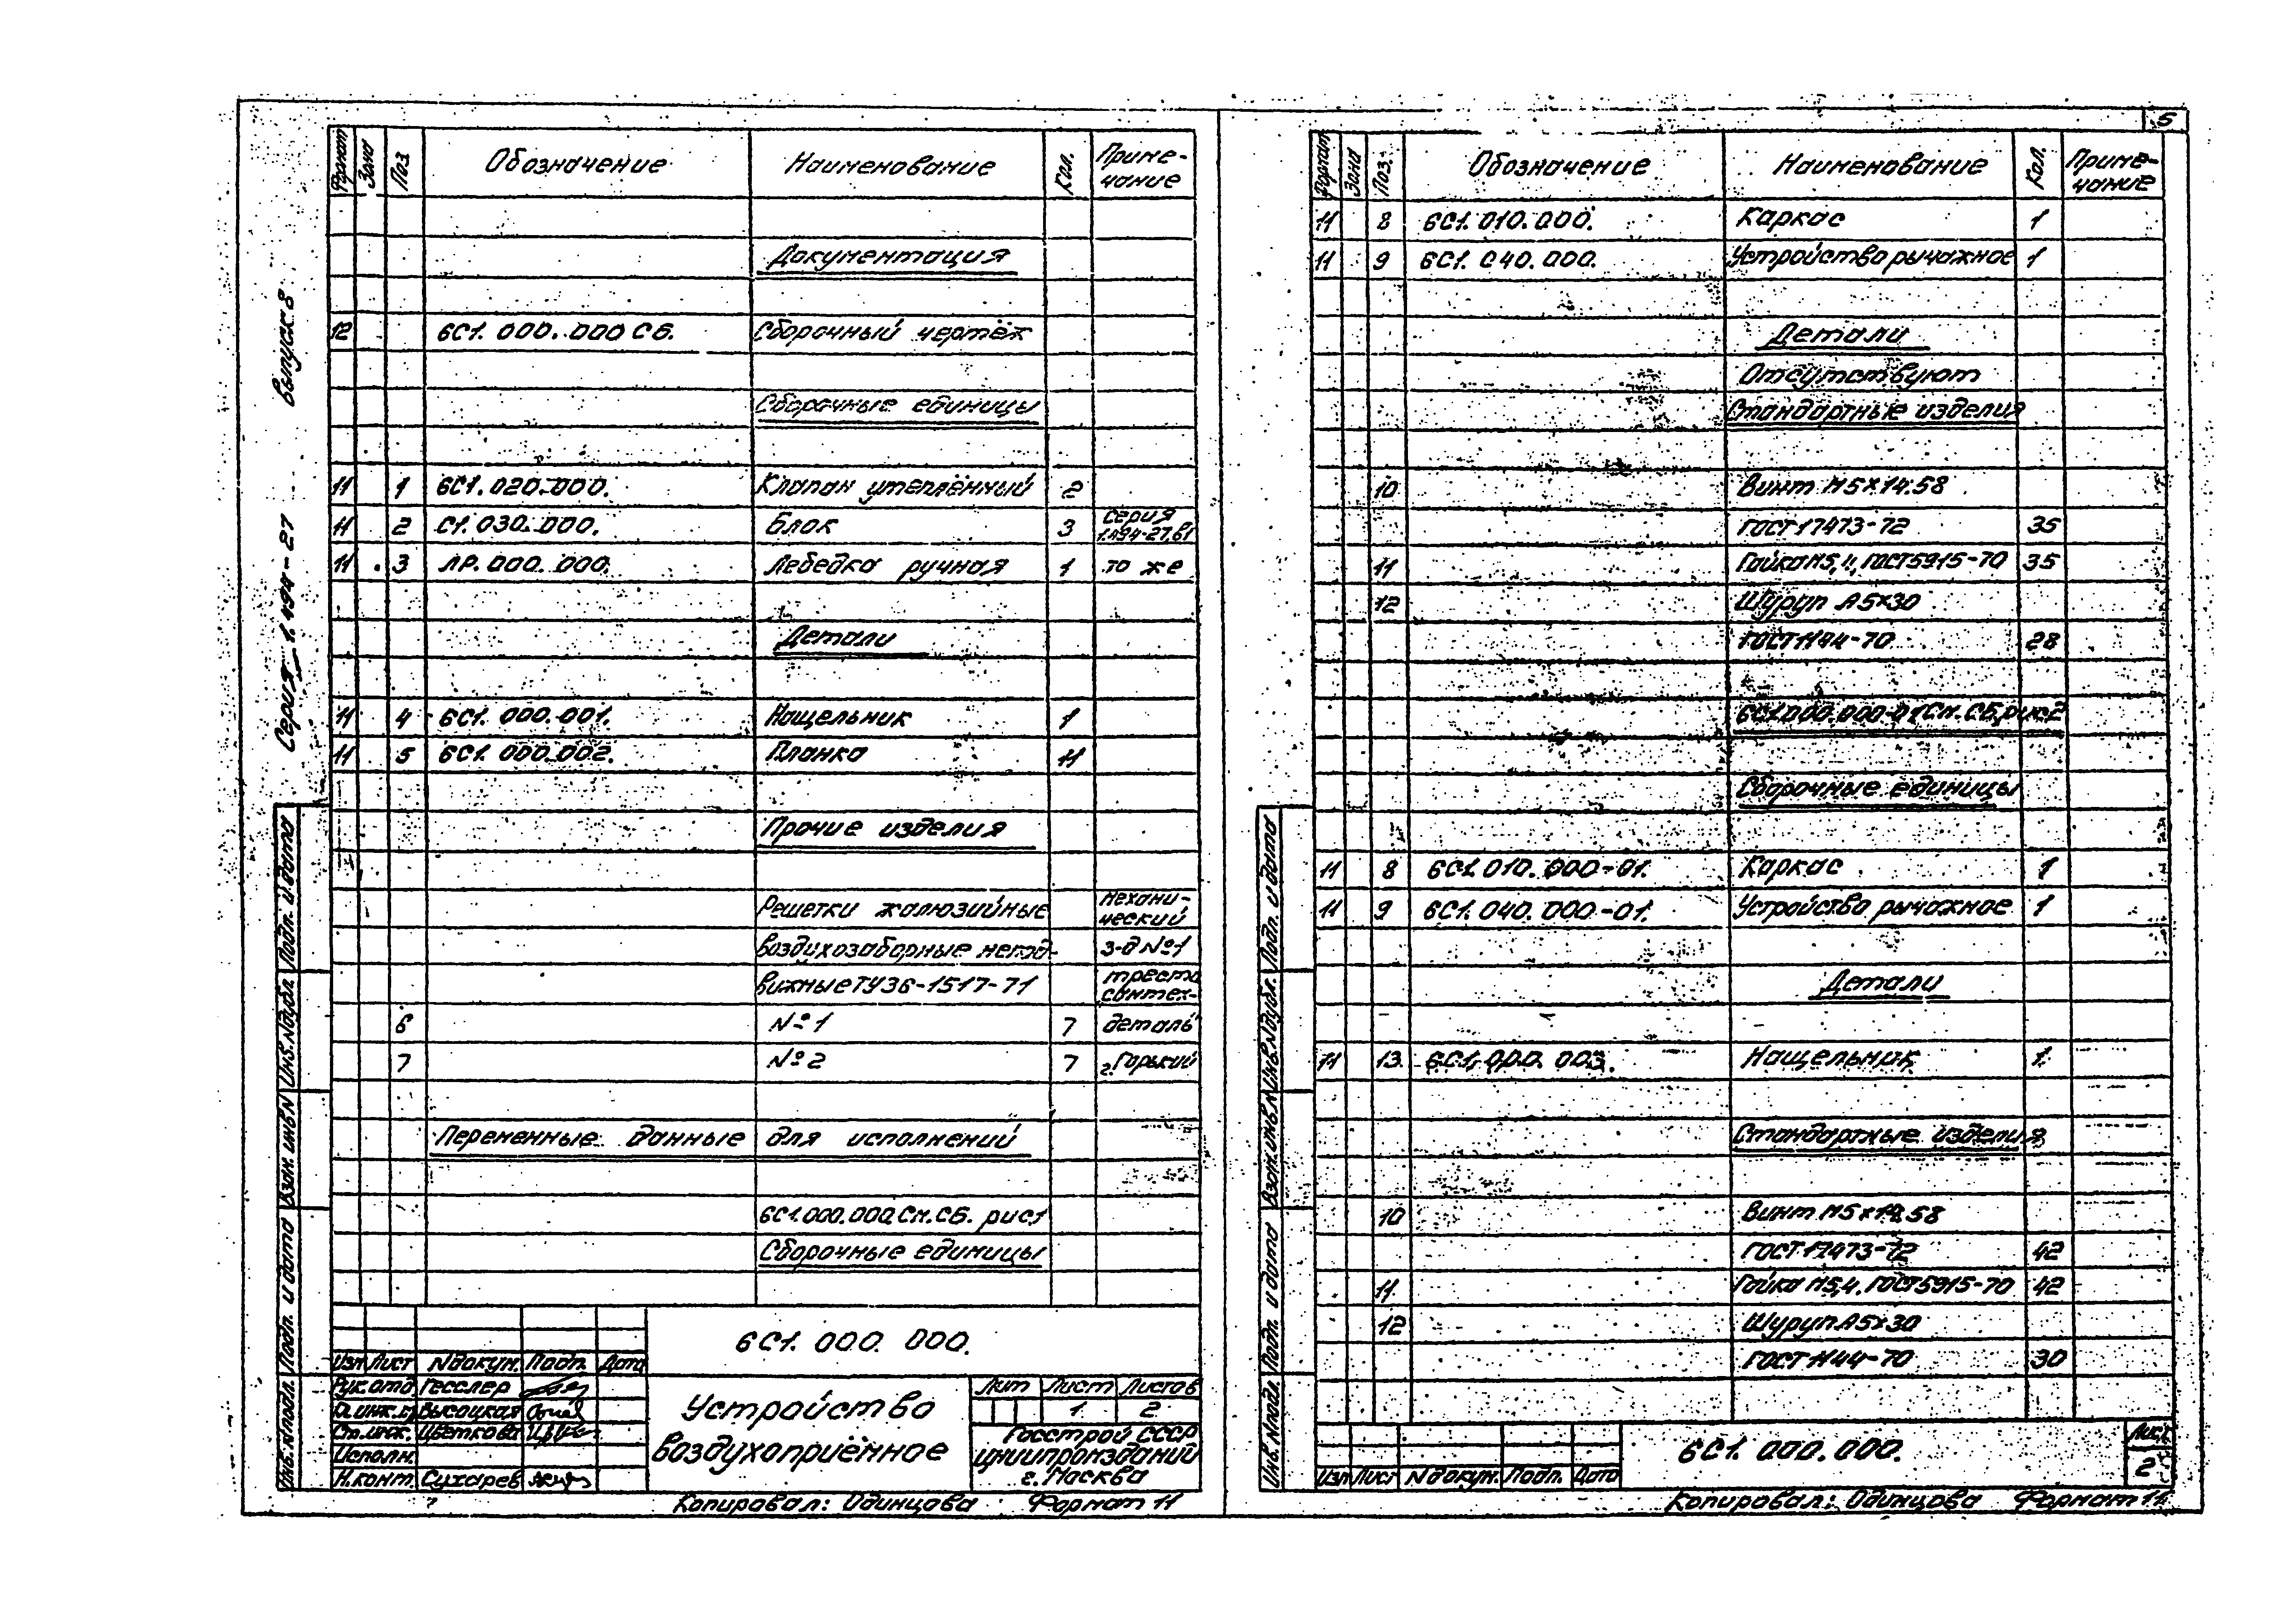 5
Серия 1.494-27 выпуск 8
Формат Зона Поз Обозначение Наименование Кол. Приме-
чание
Документация
12 6С1.000.000 СБ. Сборочный чертёж
Сборочные единицы
11 1 6С1.020.000. Клапан утеплённый 2
11 2 С1.030.000. Блок 3 серия
1.494-27.в1
11 3 ЛР.000.000. Лебедка ручная 1 то же
Детали
11 4 6С1.000.001. Нащельник 1
11 5 6С1.000.002. Планка 11
Прочие изделия
Решетки жалюзийные механи-
ческий
воздухозаборные непод- з-д №1
вижные ТУ36-1517-71 треста
сантех-
6 №1 7 деталь
7 №2 7 г.Горький
Переменные данные для исполнений
6С1.000.000 См.СБ. рис1
Сборочные единицы
6С1.000.000.
Изм Лист №докум. Подп. Дата
Рук.отд Гесслер
Гл.инж.п Высоцкая
Ст.инж. Цветкова
Исполн.
Н.конт. Сухарев
Устройство
воздухоприёмное
Лит Лист Листов
1 2
Госстрой СССР
ЦНИИпромзданий
г.Москва
Копировал: Одинцова Формат 11
Инв.№подл. Подп. и дата Взам.инв.№ Инв.№дубл. Подп. и дата
Формат Зона Поз. Обозначение Наименование Кол. Приме-
чание
11 8 6С1.010.000. Каркас 1
11 9 6С1.040.000. Устройство рычажное 1
Детали
Отсутствуют
Стандартные изделия
10 Винт М5×14.58
ГОСТ17473-72 35
11 Гайка М5,4, ГОСТ5915-70 35
12 Шуруп А5×30
ГОСТ1144-70 28
6С1.000.000-01 См.СБ.рис2
Сборочные единицы
11 8 6С1.010.000-01. Каркас 1
11 9 6С1.040.000-01. Устройство рычажное 1
Детали
11 13 6С1.000.003. Нащельник 1
Стандартные изделия
10 Винт М5×14.58
ГОСТ17473-72 42
11 Гайка М5,4. ГОСТ5915-70 42
12 Шуруп А5×30
ГОСТ 1144-70 30
6С1.000.000.
Лист
2
Изм Лист №докум. Подп. Дата
Копировал: Одинцова Формат 11
Инв.№подл. Подп. и дата Взам.инв.№ Инв.№дубл. Подп. и дата